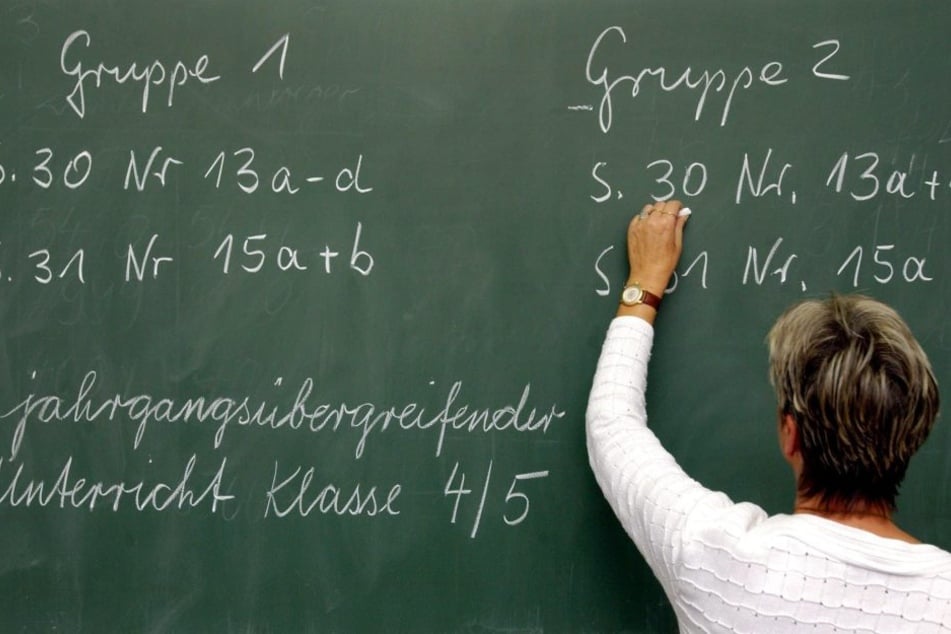 Gruppe 1
S. 30 Nr 13a-d
S. 31 Nr 15a+b
jahrgangsübergreifender
Unterricht Klasse 4/5
Gruppe 2
S. 30 Nr. 13a+
S. 31 Nr. 15a